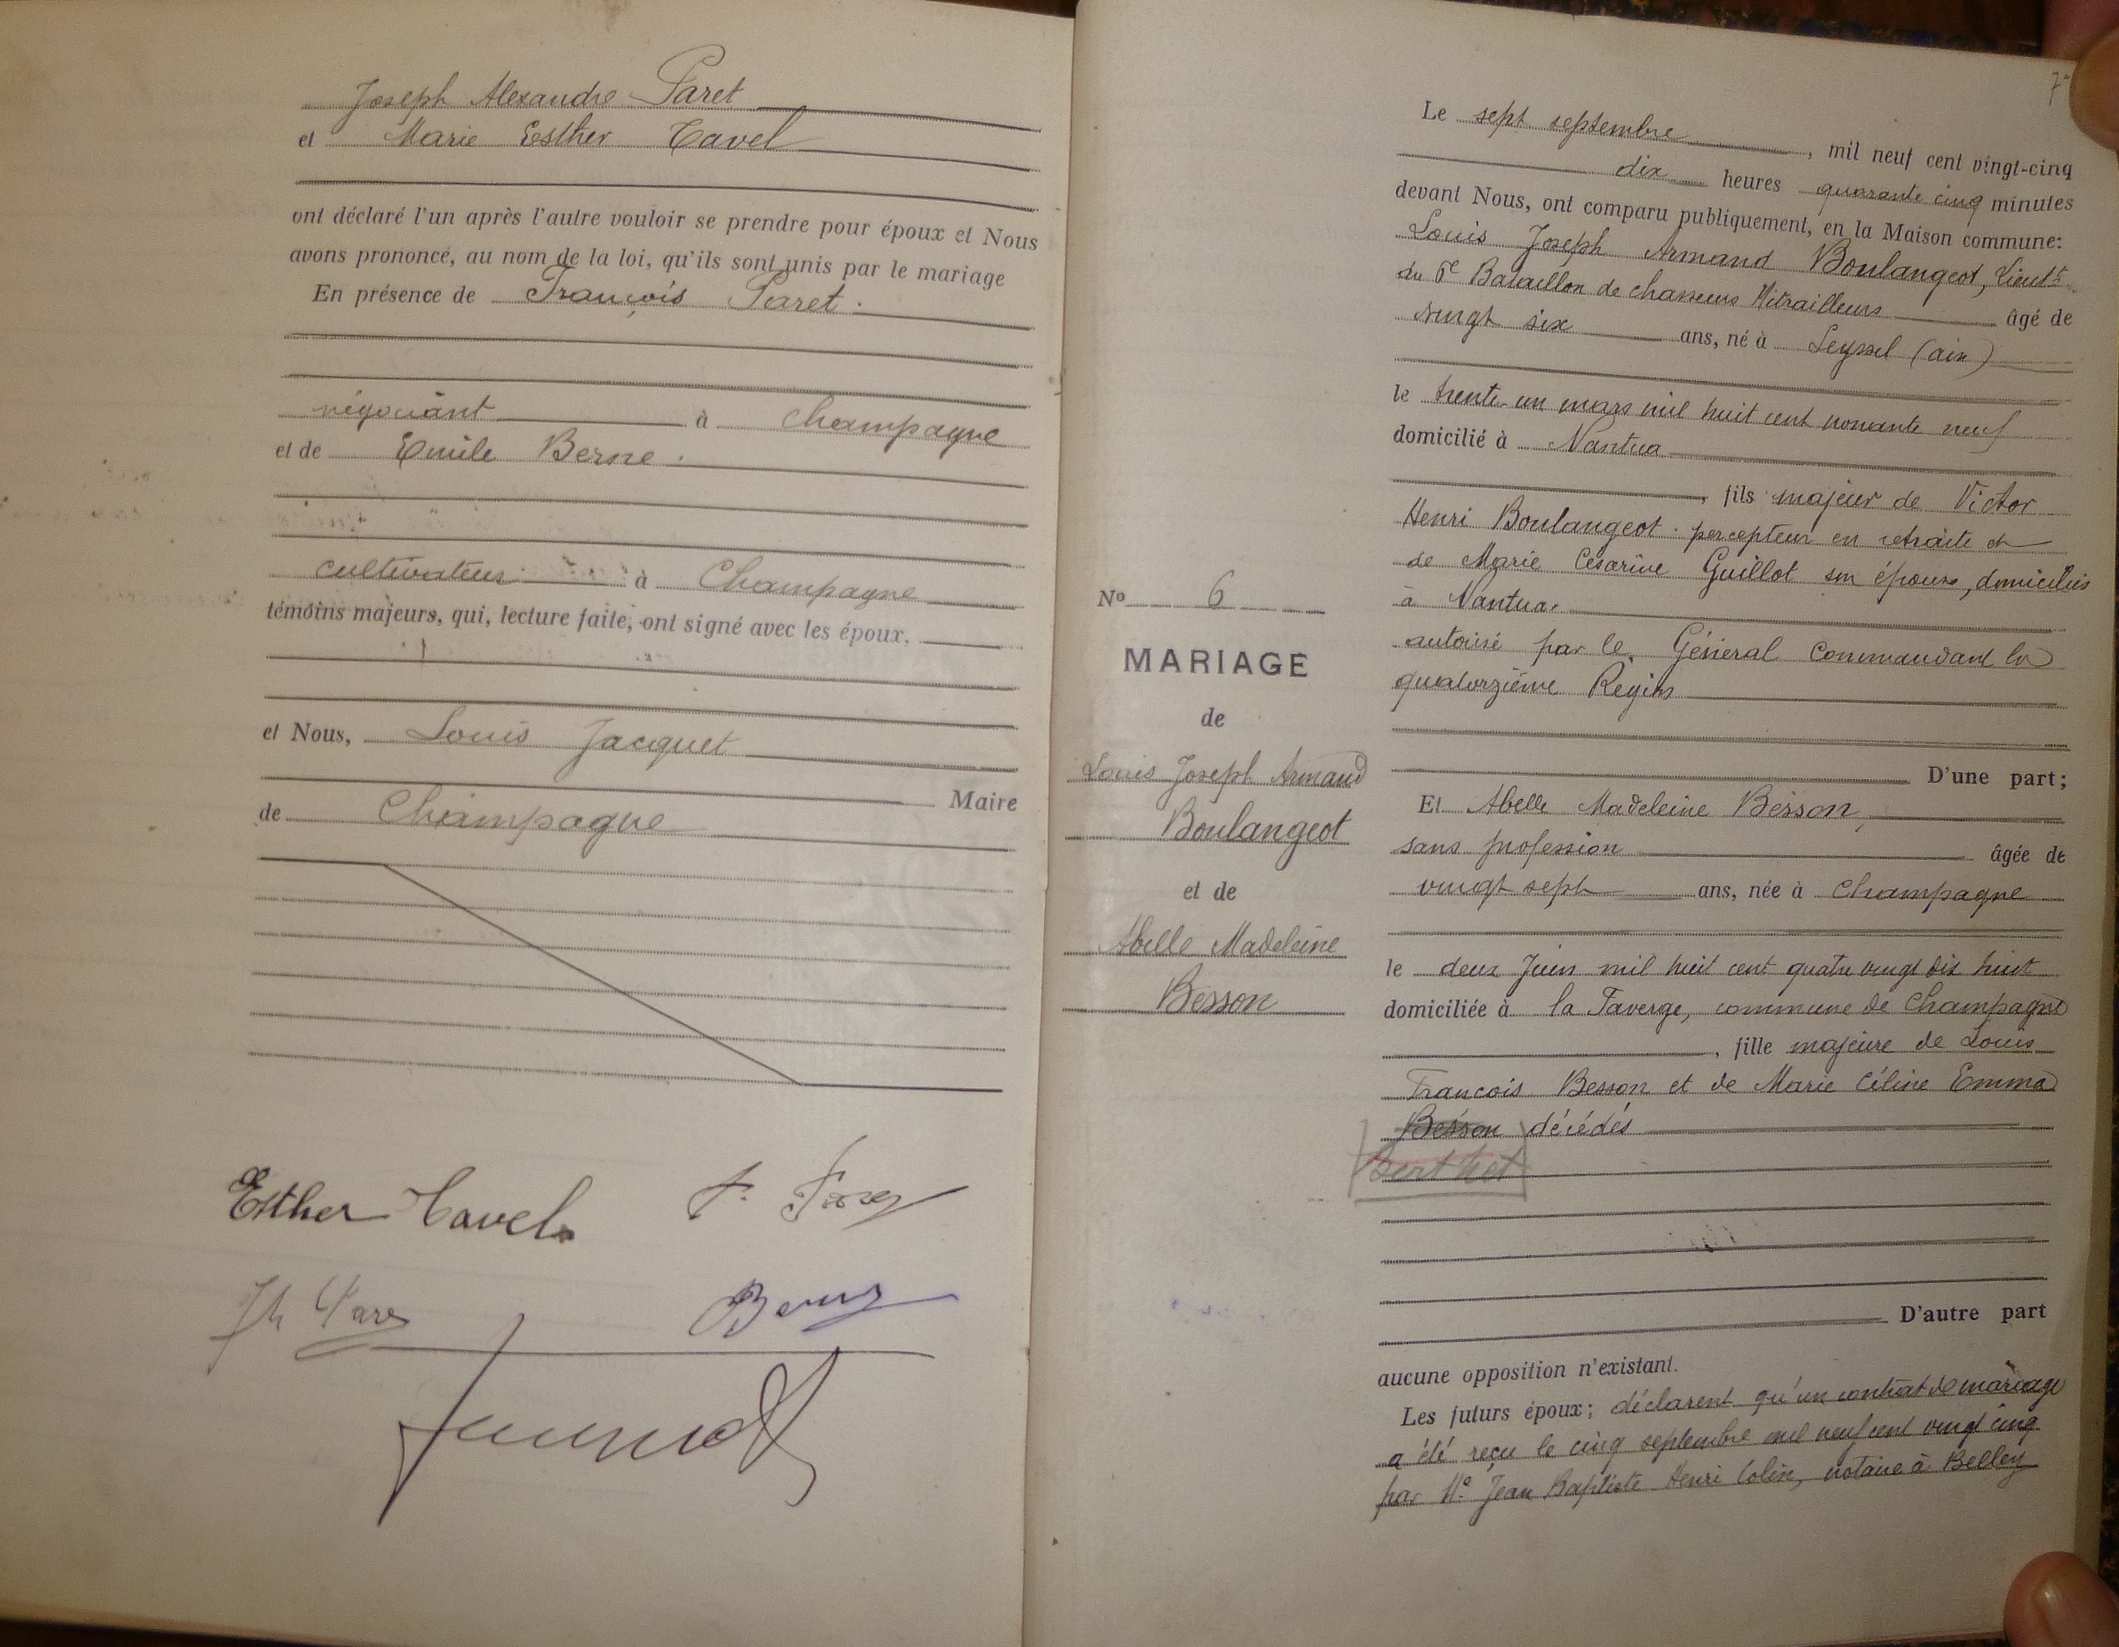 Joseph Alexandre Paret
et Marie Esther Tavel
ont déclaré l'un après l'autre vouloir se prendre pour époux et Nous
avons prononcé, au nom de la loi, qu'ils sont unis par le mariage
En présence de François Paret.
négociant à Champagne
et de Emile Berne.
cultivateur à Champagne
témoins majeurs, qui, lecture faite, ont signé avec les époux.
et Nous, Louis Jacquet
Maire
de Champagne
Esther Tavel
Berne
No 6
MARIAGE
de
Louis Joseph Armand
Boulangeot
et de
Abelle Madeleine
Besson
7
Le sept septembre, mil neuf cent vingt-cinq
dix heures quarante cinq minutes
devant Nous, ont comparu publiquement, en la Maison commune:
Louis Joseph Armand Boulangeot, Lieut
du 6e Bataillon de chasseurs Mitrailleurs âgé de
vingt six ans, né à Seyssel (ain)
le trente-un mars mil huit cent nonante neuf
domicilié à Nantua
, fils majeur de Victor
Henri Boulangeot percepteur en retraite et
de Marie Césarine Guillot son épouse, domiciliés
à Nantua.
autorisé par le Général Commandant la
quatorzième Region
D'une part;
Et Abelle Madeleine Besson,
sans profession âgée de
vingt sept ans, née à Champagne
le deux Juin mil huit cent quatre vingt dix huit
domiciliée à la Taverge, commune de Champagne
, fille majeure de Louis
François Besson et de Marie Céline Emma
Besson décédés
Berthet
D'autre part
aucune opposition n'existant.
Les futurs époux; déclarent qu'un contrat de mariage
a été reçu le cinq septembre mil neuf cent vingt cinq
par Me Jean Baptiste Henri Colin, notaire à Belley